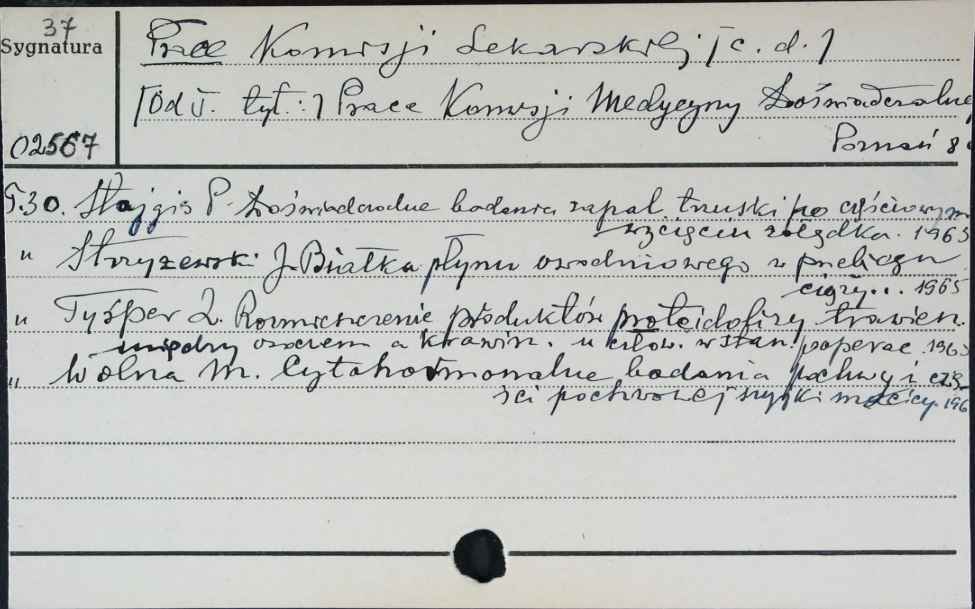 37
Sygnatura
02567
Prace Komisji Lekarskiej [c. d.]
[Od V. tyt.:] Prace Komisji Medycyny Doświadczalnej
Poznań 8°
T.30. Stajgis P. Doświadczalne badania zapal. trzustki po częściowym
wycięciu żołądka. 1965
" Stryżewski J. Białka płynu owodniowego w przebiegu
ciąży... 1965
" Tyśper L. Rozmieszczenie produktów proteidofizy trawien.
między osoczem a krwin. u człow. w stan. poperac. 1965
" Wolna M. Cytohormonalne badania pochwy i częś-
ści pochwowej szyjki macicy. 196